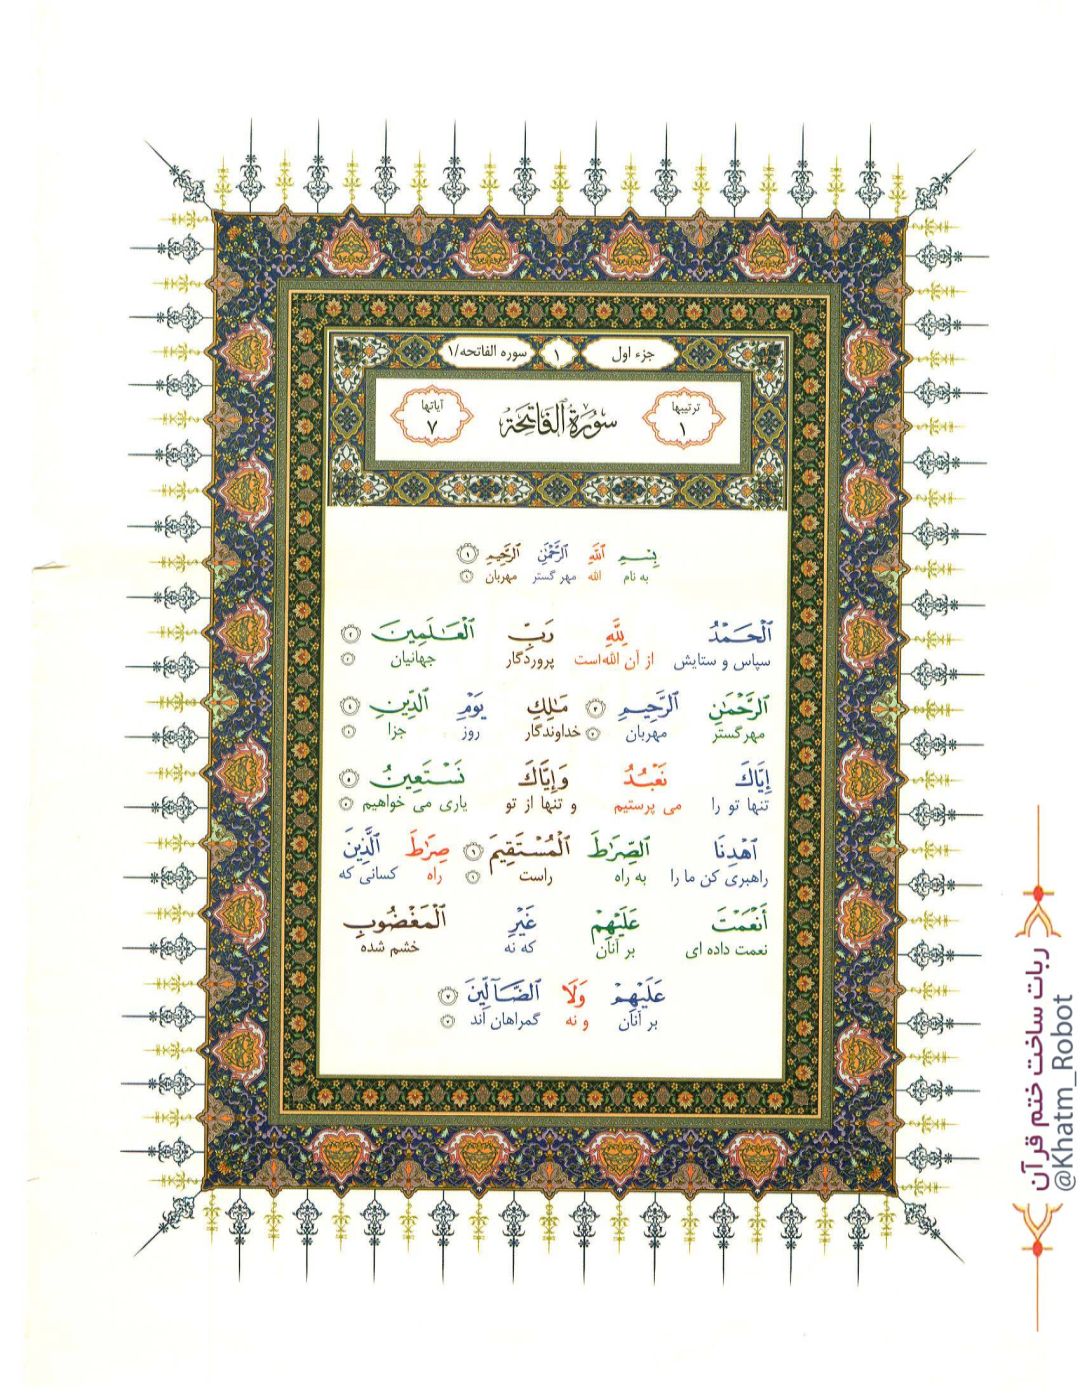 جزء اول ١ سوره الفاتحه/١
ترتيبها ١
سُورَةُ ٱلْفَاتِحَةِ
آياتها ٧
بِسْمِ ٱللَّهِ ٱلرَّحْمَٰنِ ٱلرَّحِيمِ ١
به نام الله مهر گستر مهربان ١
ٱلْحَمْدُ لِلَّهِ رَبِّ ٱلْعَـٰلَمِينَ ٢
سپاس و ستایش از آن الله است پروردگار جهانیان ٢
ٱلرَّحْمَٰنِ ٱلرَّحِيمِ ٣ مَـٰلِكِ يَوْمِ ٱلدِّينِ ٤
مهرگستر مهربان ٣ خداوندگار روز جزا ٤
إِيَّاكَ نَعْبُدُ وَإِيَّاكَ نَسْتَعِينُ ٥
تنها تو را می پرستیم و تنها از تو یاری می خواهیم ٥
ٱهْدِنَا ٱلصِّرَٰطَ ٱلْمُسْتَقِيمَ ٦ صِرَٰطَ ٱلَّذِينَ
راهبری کن ما را به راه راست ٦ راه کسانی که
أَنْعَمْتَ عَلَيْهِمْ غَيْرِ ٱلْمَغْضُوبِ
نعمت داده ای بر آنان که نه خشم شده
عَلَيْهِمْ وَلَا ٱلضَّآلِّينَ ٧
بر آنان و نه گمراهان اند ٧
ربات ساخت ختم قرآن
@Khatm_Robot